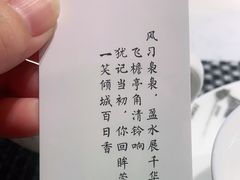 风习袅袅，盈水展千华
飞檐亭角清铃响
犹记当初，你回眸
一笑倾城百日香